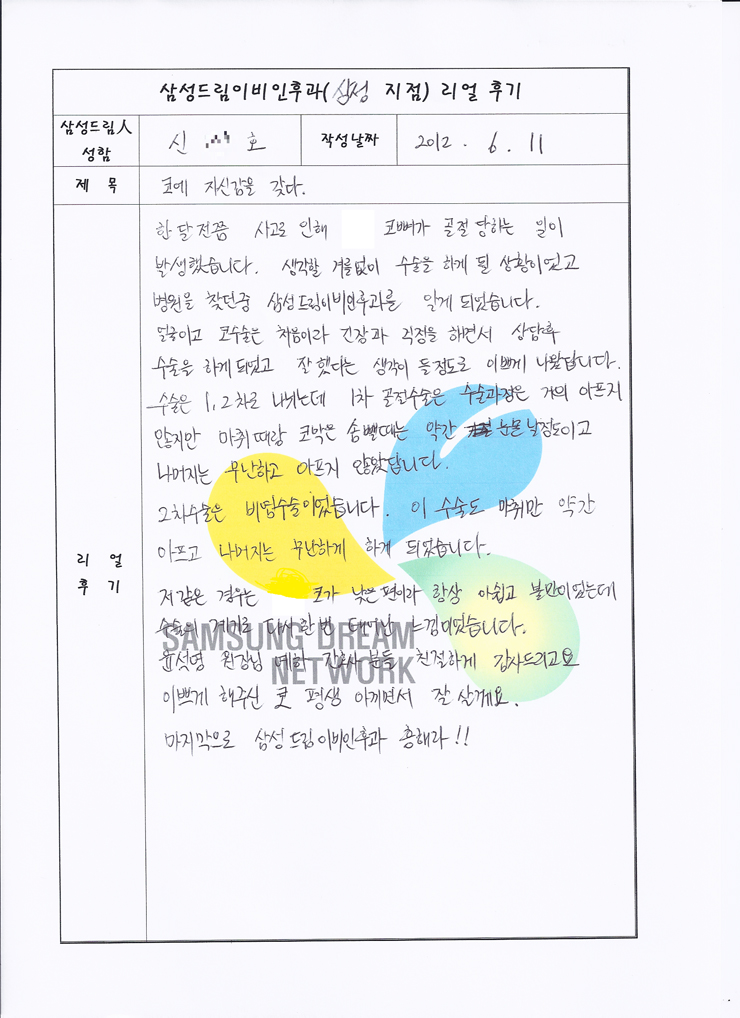 삼성드림이비인후과(삼성 지점) 리얼 후기
삼성드림人
성함
신 호
작성날짜
2012. 6. 11
제 목
코에 자신감을 갖다.
리 얼
후 기
한달전쯤 사고로 인해 코뼈가 골절 당하는 일이
발생했습니다. 생각할 겨를없이 수술을 하게 될 상황이었고
병원을 찾던중 삼성드림이비인후과를 알게 되었습니다.
얼굴이고 코수술은 처음이라 긴장과 걱정을 하면서 상담후
수술을 하게되었고 잘했다는 생각이 들정도로 이쁘게 나왔답니다.
수술은 1,2차로 나뉘는데 1차 골절수술은 수술과정은 거의 아프지
않지만 마취때랑 코막은 솜뺄때는 약간 눈물날정도이고
나머지는 무난하고 아프지 않았답니다.
2차수술은 비밸브수술이었습니다. 이 수술도 마취만 약간
아프고 나머지는 무난하게 하게 되었습니다.
저같은 경우는 코가 낮은편이라 항상 아쉽고 불만이었는데
수술의 계기로 다시한번 태어난 느낌이었습니다.
윤석영 원장님 간호사 분들 친절하게 감사드리고요
이쁘게 해주신 코 평생 아끼면서 잘 살게요.
마지막으로 삼성드림이비인후과 흥해라!!
SAMSUNG DREAM
NETWORK